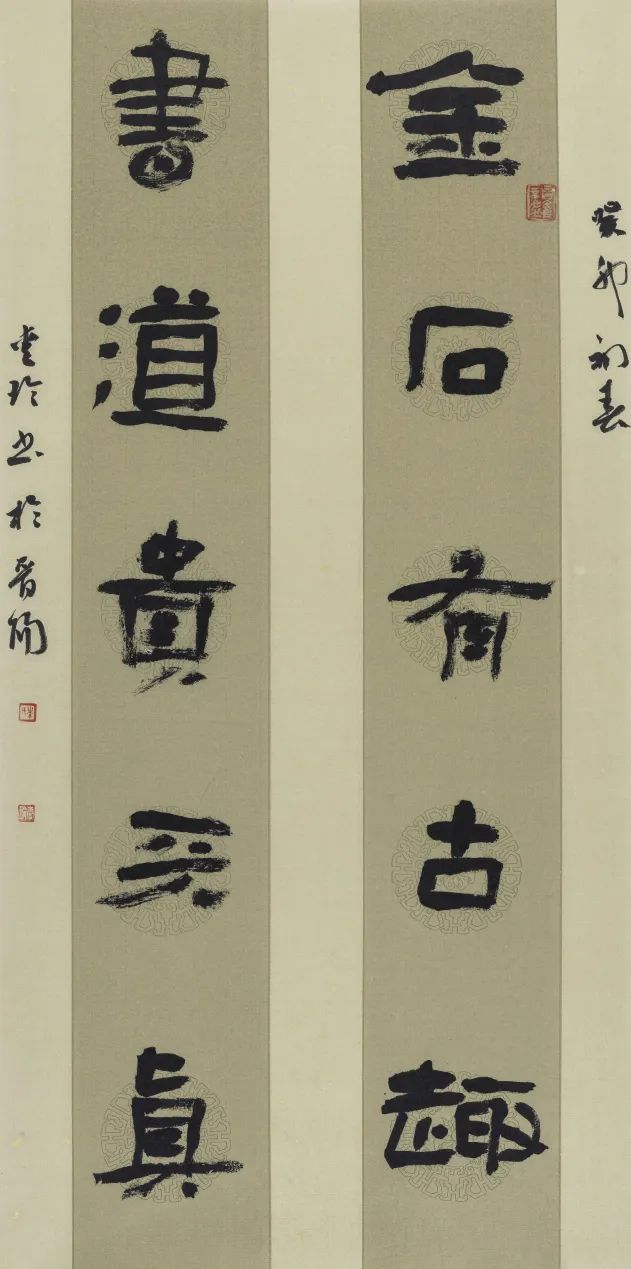 癸卯初春
金石有古趣
書道貴天真
玲书於晋